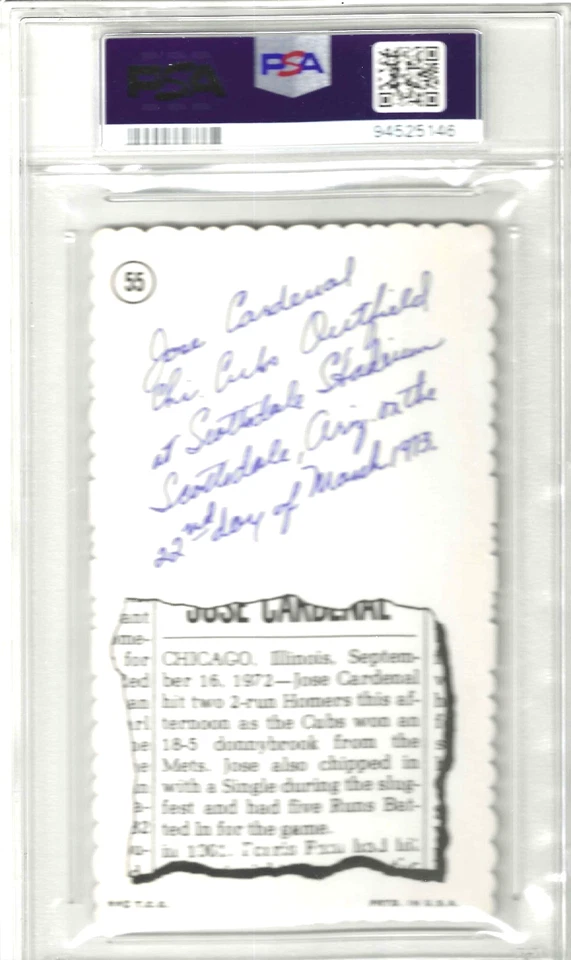 PSA
PSA
94525146
55
Jose Cardenal
Chi. Cubs Outfield
at Scottsdale Stadium
Scottsdale, Ariz. on the
22nd day of March, 1973.
JOSE CARDENAL
CHICAGO, Illinois, Septem-
ber 16, 1972—Jose Cardenal
hit two 2-run Homers this af-
ternoon as the Cubs won an
18-5 donnybrook from the
Mets. Jose also chipped in
with a Single during the slug-
fest and had five Runs Bat-
ted In for the game.
T.C.G.
PRTD. IN U.S.A.